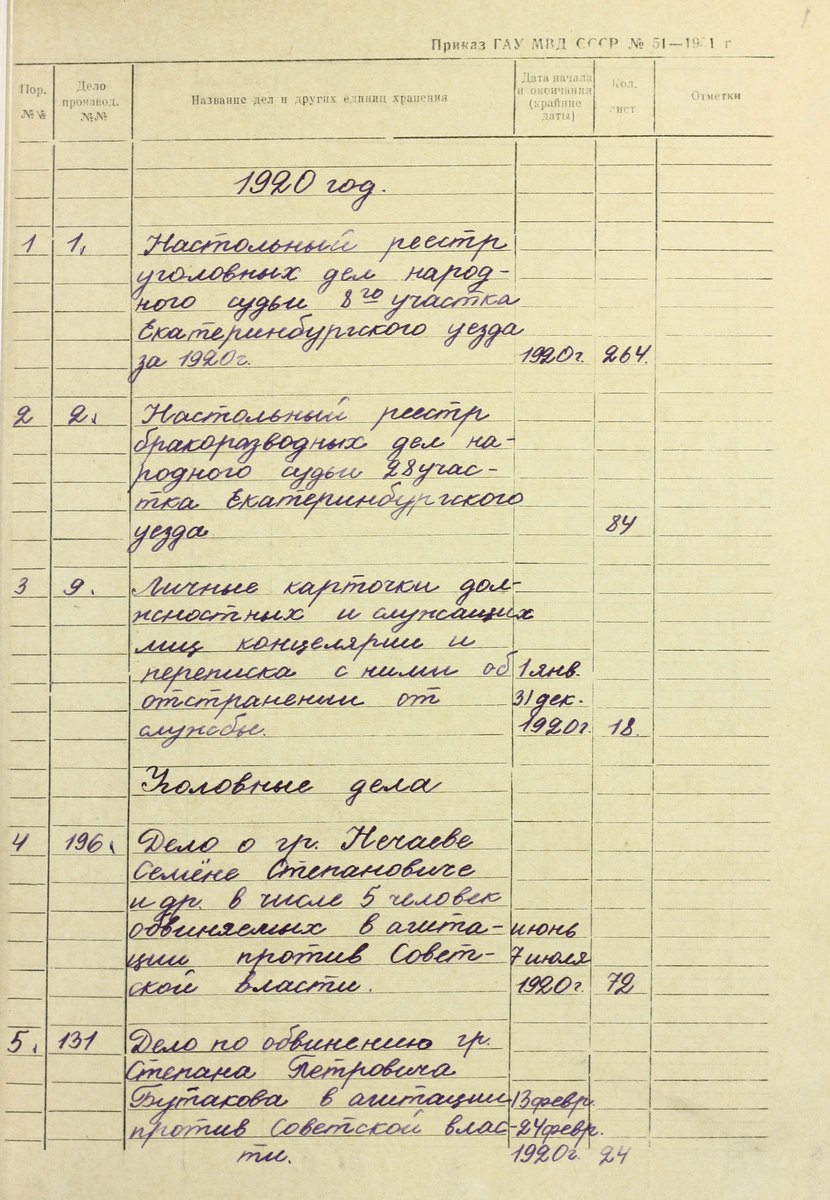 1
Приказ ГАУ МВД СССР № 51—1951 г
Пор. №№
Дело производ. №№
Название дел и других единиц хранения
Дата начала и окончания (крайние даты)
Кол. лист
Отметки
1920 год.
1 1. Настольный реестр
уголовных дел народ-
ного судьи 8го участка
Екатеринбургского уезда
за 1920г. 1920г. 264.
2 2. Настольный реестр
бракоразводных дел на-
родного судьи 28 учас-
тка Екатеринбургского
уезда 84
3 9. Личные карточки дол-
жностных и служащих
лиц концелярии и
переписка с ними об 1 янв.
отстранении от 31 дек.
службы. 1920г. 18.
Уголовные дела
4 196. Дело о гр. Нечаеве
Семёне Степановиче
и др. в числе 5 человек
обвиняемых в агита- июнь
ции против Совет- 7 июля
ской власти. 1920г. 72
5. 131 Дело по обвинению гр.
Степана Петровича
Бутакова в агитации 13 февр.
против Советской влас- -24 февр.
ти. 1920г. 24